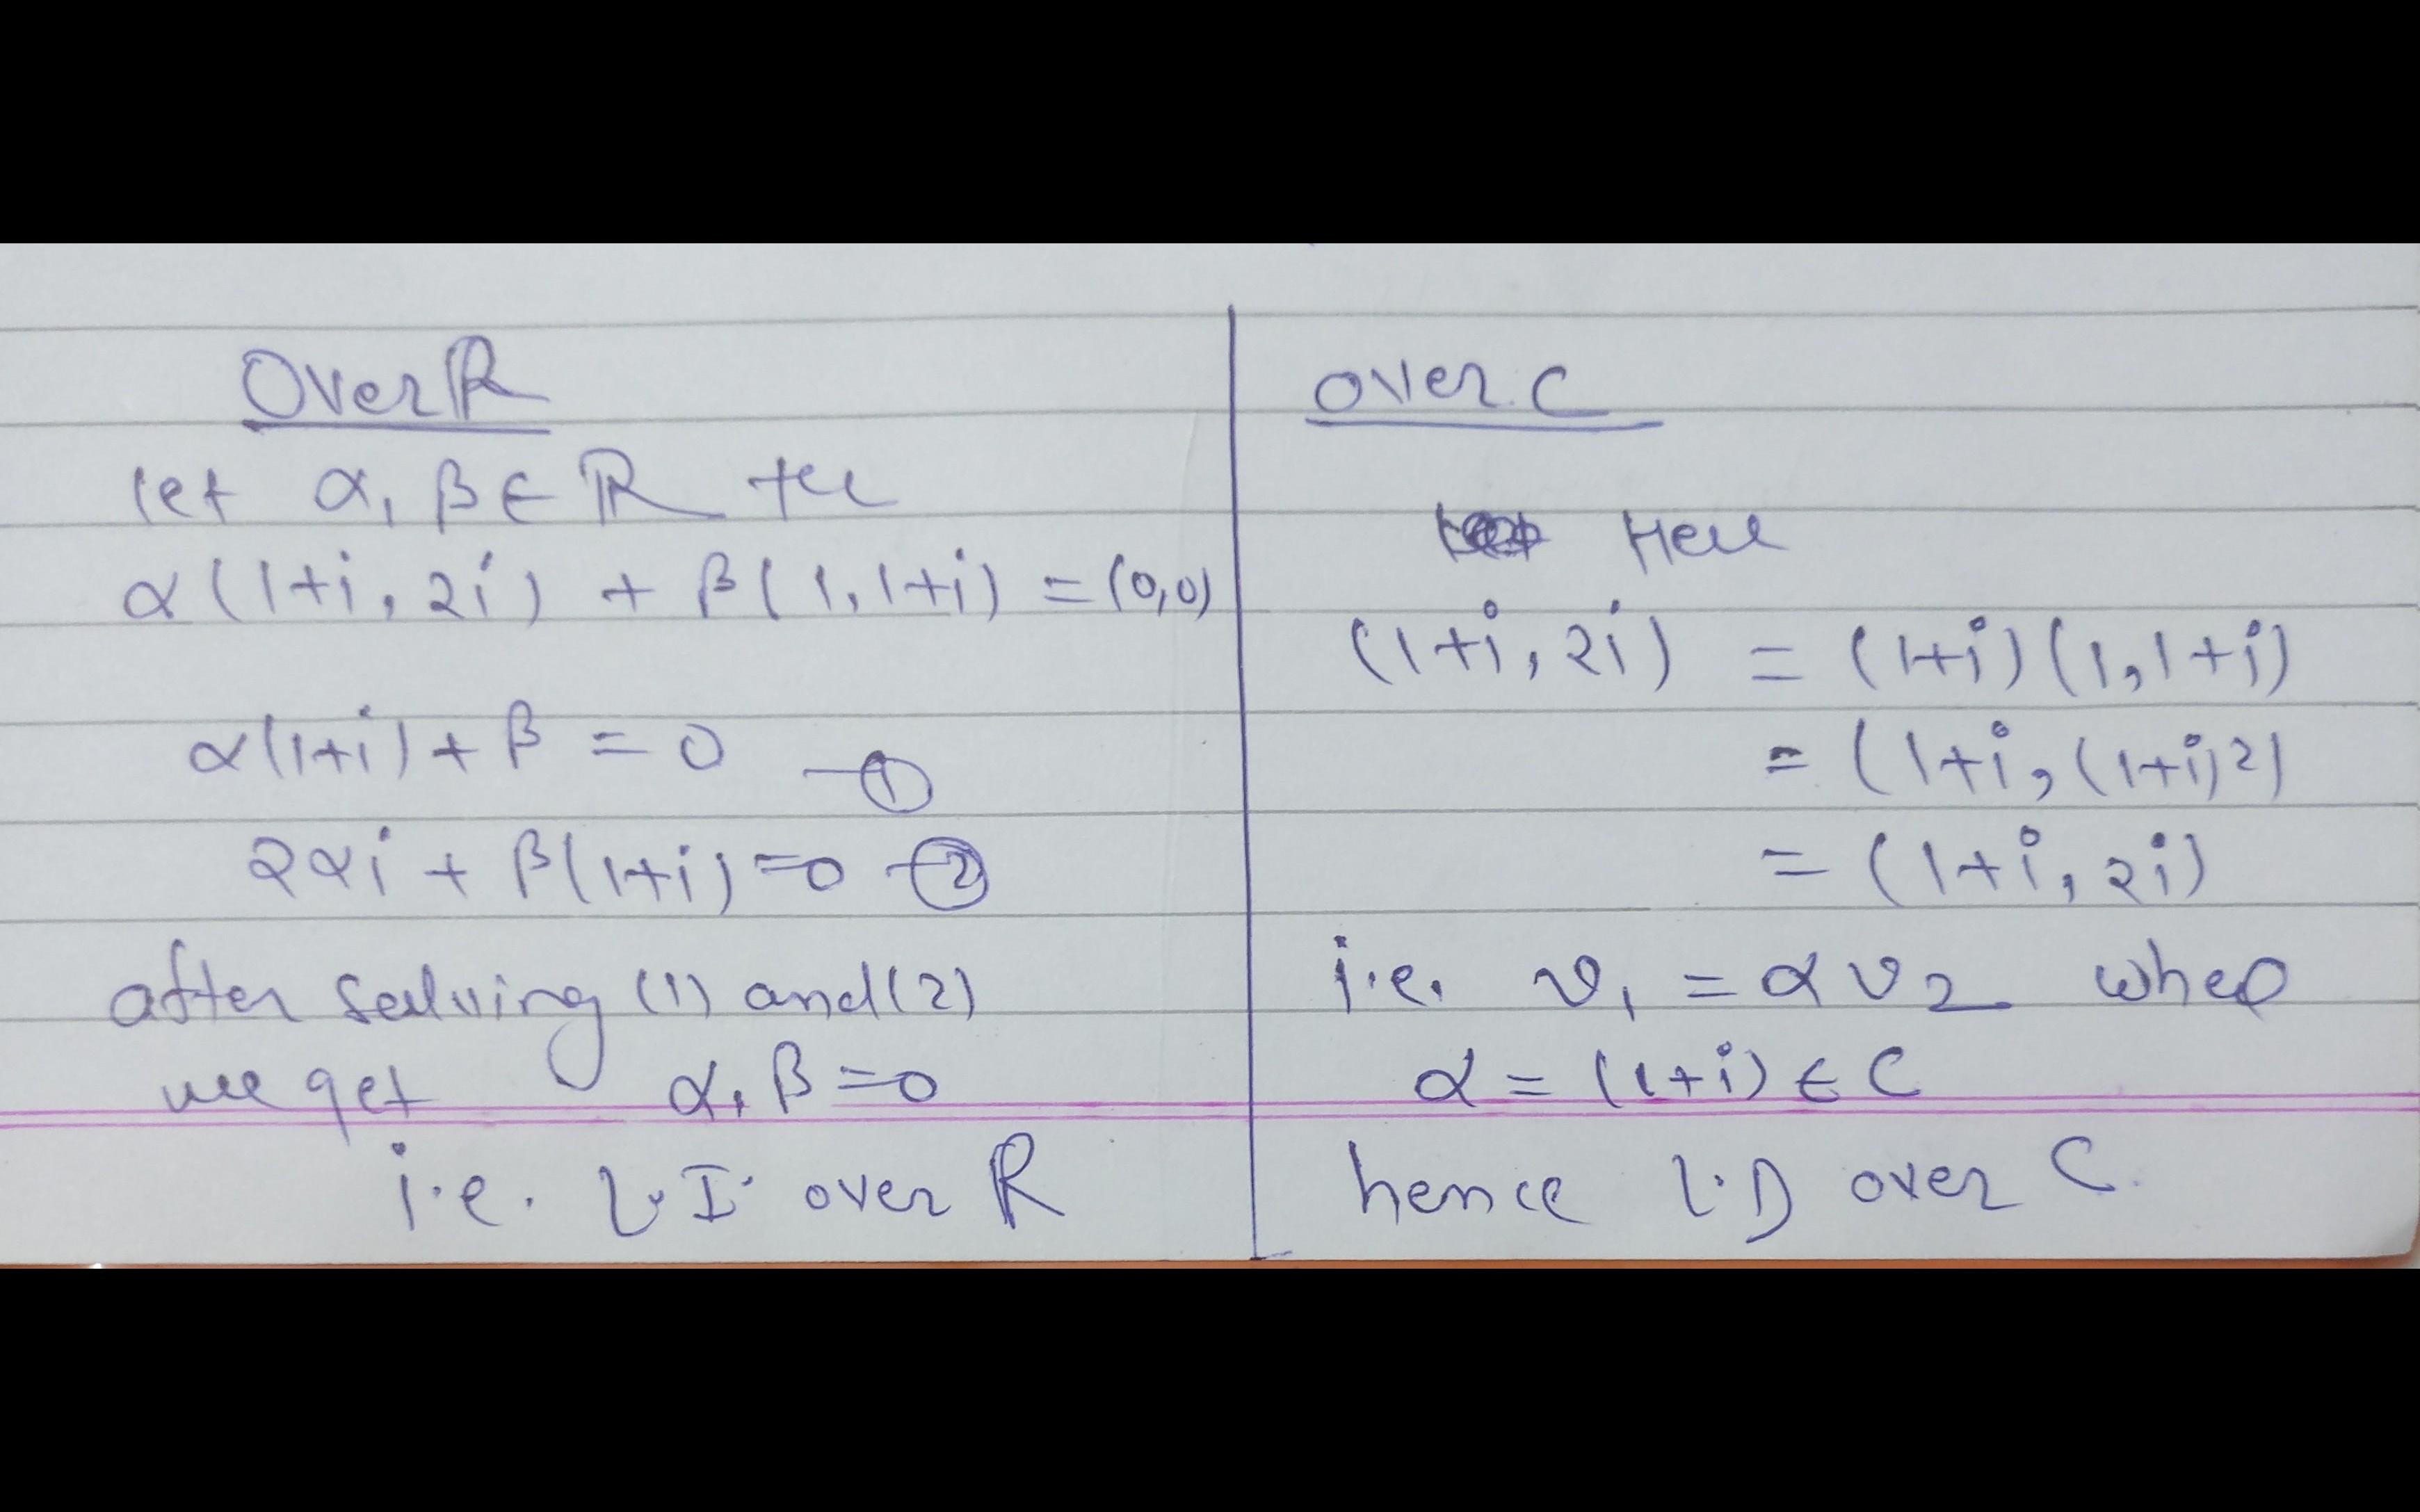 Over ℝ
let α, β ∈ ℝ the
α(1+i, 2i) + β(1, 1+i) = (0,0)
α(1+i) + β = 0 —①
2αi + β(1+i) = 0 —②
after solving (1) and (2)
we get α, β = 0
i.e. L.I. over R
over C
Here
(1+i, 2i) = (1+i)(1, 1+i)
= (1+i, (1+i)²)
= (1+i, 2i)
i.e. v₁ = αv₂ where
α = (1+i) ∈ C
hence L.D over C.